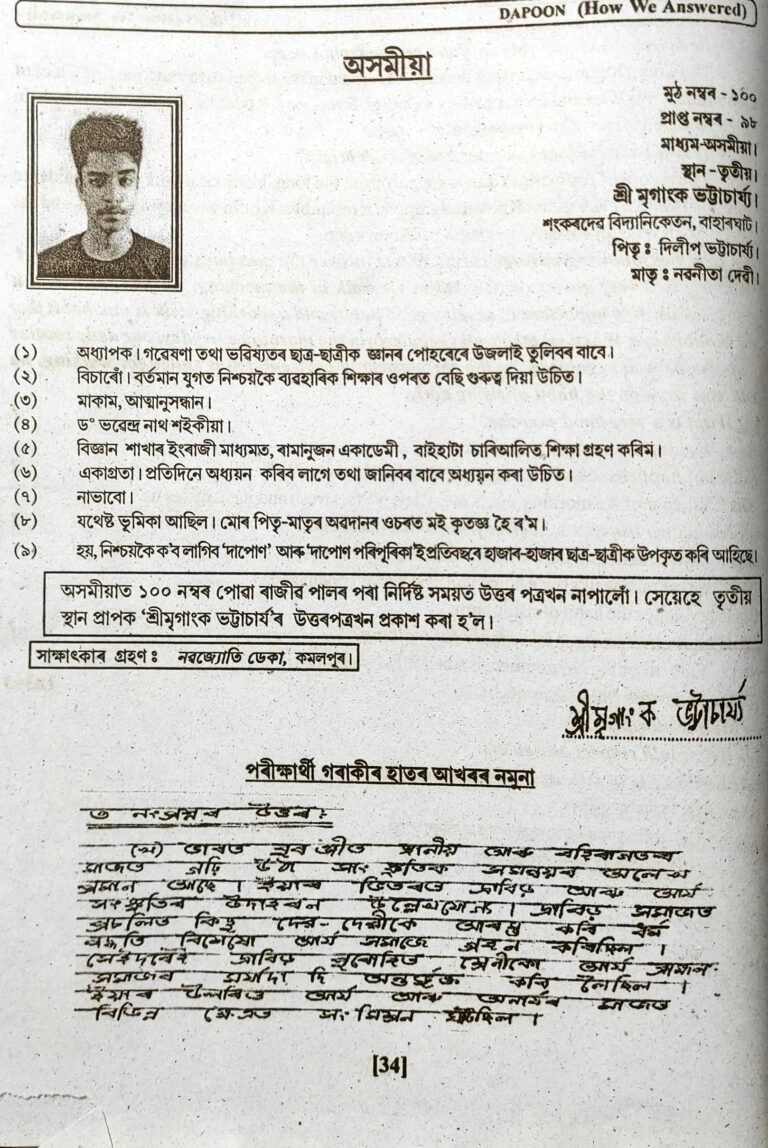 DAPOON (How We Answered)
অসমীয়া
মুঠ নম্বৰ - ১০০
প্ৰাপ্ত নম্বৰ - ৯৮
মাধ্যম-অসমীয়া।
স্থান - তৃতীয়।
শ্ৰী মৃগাংক ভট্টাচাৰ্য্য।
শংকৰদেৱ বিদ্যানিকেতন, বাহাৰঘাট।
পিতৃ ঃ দিলীপ ভট্টাচাৰ্য্য।
মাতৃ ঃ নৱনীতা দেৱী।
(১) অধ্যাপক। গৱেষণা তথা ভৱিষ্যতৰ ছাত্ৰ-ছাত্ৰীক জ্ঞানৰ পোহৰেৰে উজলাই তুলিবৰ বাবে।
(২) বিচাৰোঁ। বৰ্তমান যুগত নিশ্চয়কৈ ব্যৱহাৰিক শিক্ষাৰ ওপৰত বেছি গুৰুত্ব দিয়া উচিত।
(৩) মাকাম, আত্মানুসন্ধান।
(৪) ড° ভৱেন্দ্ৰ নাথ শইকীয়া।
(৫) বিজ্ঞান শাখাৰ ইংৰাজী মাধ্যমত, ৰামানুজন একাডেমী , বাইহাটা চাৰিআলিত শিক্ষা গ্ৰহণ কৰিম।
(৬) একাগ্ৰতা। প্ৰতিদিনে অধ্যয়ন কৰিব লাগে তথা জানিবৰ বাবে অধ্যয়ন কৰা উচিত।
(৭) নাভাবো।
(৮) যথেষ্ট ভূমিকা আছিল। মোৰ পিতৃ-মাতৃৰ অৱদানৰ ওচৰত মই কৃতজ্ঞ হৈ ৰ'ম।
(৯) হয়, নিশ্চয়কৈ ক'ব লাগিব 'দাপোণ' আৰু 'দাপোণ পৰিপূৰিকা'ই প্ৰতিবছৰে হাজাৰ-হাজাৰ ছাত্ৰ-ছাত্ৰীক উপকৃত কৰি আহিছে।
অসমীয়াত ১০০ নম্বৰ পোৱা ৰাজীৱ পালৰ পৰা নিৰ্দিষ্ট সময়ত উত্তৰ পত্ৰখন নাপালোঁ। সেয়েহে তৃতীয়
স্থান প্ৰাপক 'শ্ৰীমৃগাংক ভট্টাচাৰ্য'ৰ উত্তৰপত্ৰখন প্ৰকাশ কৰা হ'ল।
সাক্ষাৎকাৰ গ্ৰহণ ঃ নৱজ্যোতি ডেকা, কমলপুৰ।
শ্ৰীমৃগাংক ভট্টাচাৰ্য্য
পৰীক্ষাৰ্থী গৰাকীৰ হাতৰ আখৰৰ নমুনা
৩ নং প্ৰশ্নৰ উত্তৰ :
(খ) ভাৰত স্থানীয় আৰু বহিৰাগতৰ
মাজত গঢ়ি উঠা সাংস্কৃতিক সমন্বয়ৰ অলেখ
প্ৰমাণ আছে। ইয়াৰ ভিতৰত দ্ৰাবিড় আৰু আৰ্য
সংস্কৃতিৰ উদাহৰণ উল্লেখযোগ্য। দ্ৰাবিড় সমাজত
প্ৰচলিত কিছু দেৱ-দেৱীকে আৰম্ভ কৰি ধৰ্ম
পদ্ধতি বিশেষো আৰ্য সমাজে গ্ৰহণ কৰিছিল।
সেইদৰেই দ্ৰাবিড় পুৰোহিত শ্ৰেণীকো আৰ্য
সমাজৰ মৰ্যাদা দি অন্তৰ্ভুক্ত কৰি লৈছিল।
ইয়াৰ উপৰিও আৰ্য আৰু অনাৰ্যৰ মাজত
বিভিন্ন ক্ষেত্ৰত সংমিশ্ৰণ ঘটিছিল।
[34]